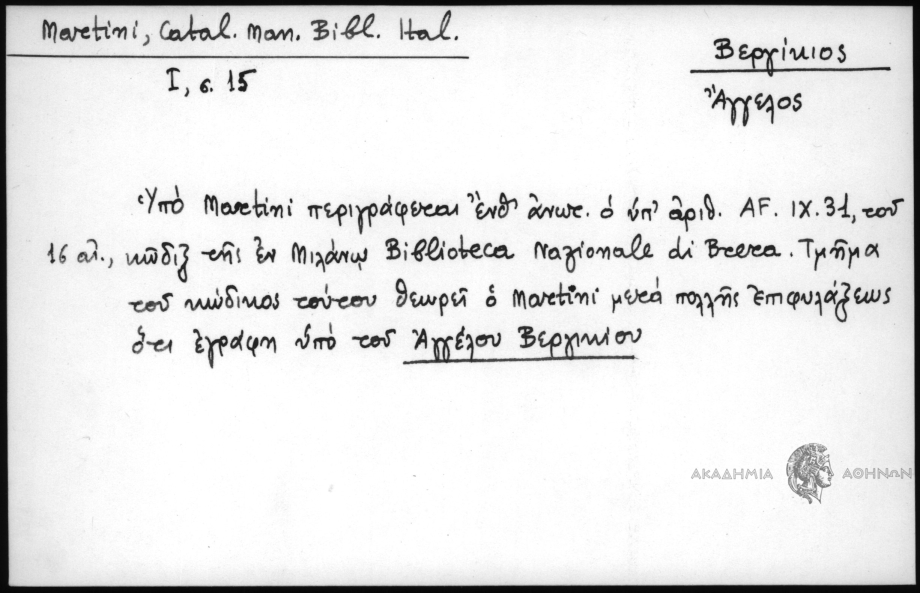 Martini, Catal. Man. Bibl. Ital.
I, σ. 15
Βεργίκιος
Ἄγγελος
Ὑπό Martini περιγράφεται ἔνθ' ἄνωτ. ὁ ὑπ' ἀριθ. AF. IX. 31, τοῦ
16 αἰ., κῶδιξ τῆς ἐν Μιλάνῳ Biblioteca Nazionale di Brera. Τμῆμα
τοῦ κώδικος τούτου θεωρεῖ ὁ Martini μετά πολλῆς ἐπιφυλάξεως
ὅτι ἐγράφη ὑπό τοῦ Ἀγγέλου Βεργικίου
ΑΚΑΔΗΜΙΑ ΑΘΗΝΩΝ